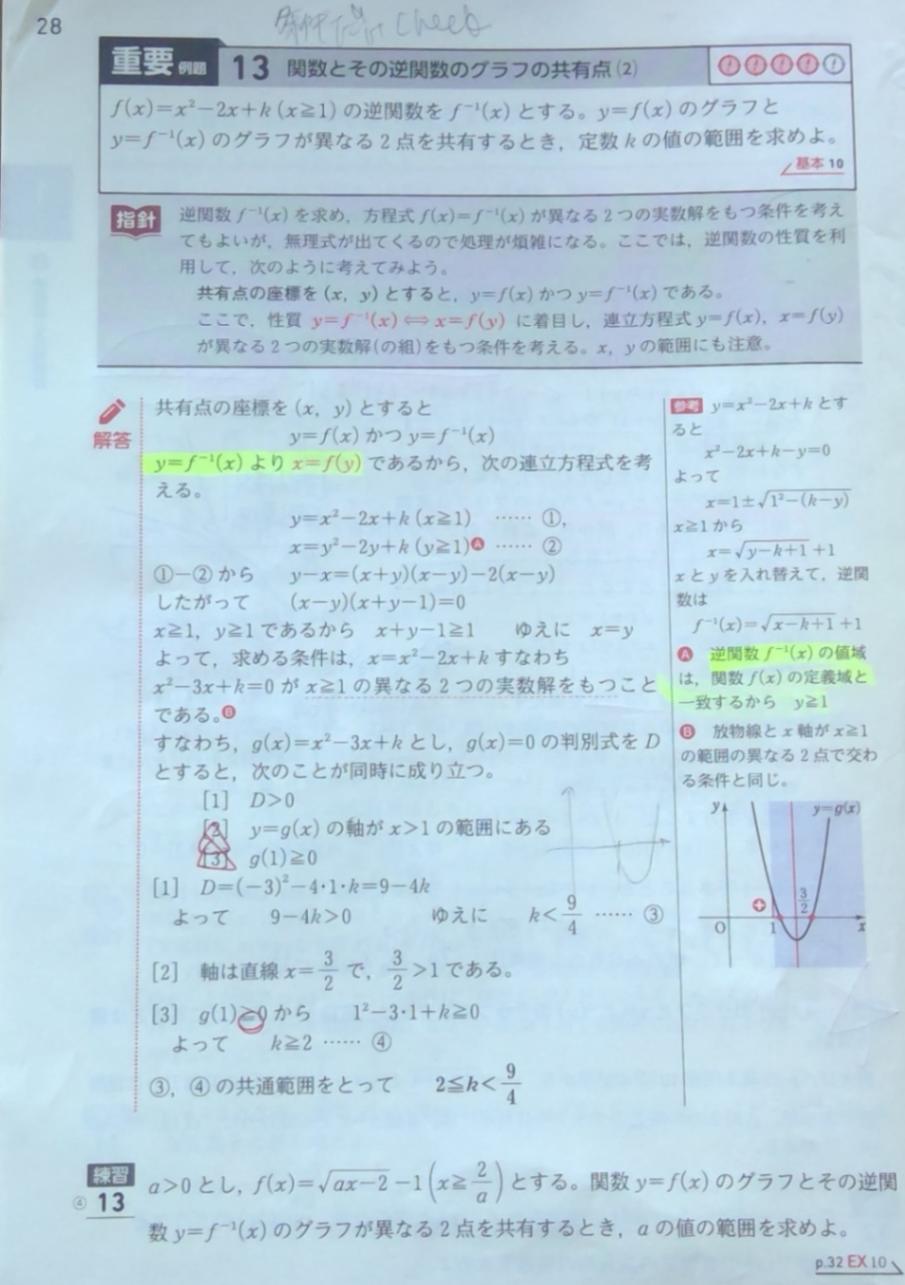 28
Check
重要 例題 13 関数とその逆関数のグラフの共有点(2)
f(x)=x²−2x+k (x≧1) の逆関数を f⁻¹(x) とする。y=f(x) のグラフと
y=f⁻¹(x) のグラフが異なる2点を共有するとき，定数 k の値の範囲を求めよ。
基本 10
指針 逆関数 f⁻¹(x) を求め，方程式 f(x)=f⁻¹(x) が異なる2つの実数解をもつ条件を考え
てもよいが，無理式が出てくるので処理が煩雑になる。ここでは，逆関数の性質を利
用して，次のように考えてみよう。
共有点の座標を (x, y) とすると，y=f(x) かつ y=f⁻¹(x) である。
ここで，性質 y=f⁻¹(x)⟺x=f(y) に着目し，連立方程式 y=f(x)，x=f(y)
が異なる2つの実数解(の組)をもつ条件を考える。x，y の範囲にも注意。
解答
共有点の座標を (x, y) とすると
y=f(x) かつ y=f⁻¹(x)
y=f⁻¹(x) より x=f(y) であるから，次の連立方程式を考
える。
y=x²−2x+k (x≧1) …… ①,
x=y²−2y+k (y≧1)Ⓐ …… ②
①−② から y−x=(x+y)(x−y)−2(x−y)
したがって (x−y)(x+y−1)=0
x≧1, y≧1 であるから x+y−1≧1 ゆえに x=y
よって，求める条件は，x=x²−2x+k すなわち
x²−3x+k=0 が x≧1 の異なる2つの実数解をもつこと
である。Ⓑ
すなわち，g(x)=x²−3x+k とし，g(x)=0 の判別式を D
とすると，次のことが同時に成り立つ。
[1] D>0
[2] y=g(x) の軸が x>1 の範囲にある
[3] g(1)≧0
[1] D=(−3)²−4・1・k=9−4k
よって 9−4k>0 ゆえに k<9/4 …… ③
[2] 軸は直線 x=3/2 で，3/2>1 である。
[3] g(1)≧0 から 1²−3・1+k≧0
よって k≧2 …… ④
③，④ の共通範囲をとって 2≦k<9/4
参考 y=x²−2x+k とす
ると
x²−2x+k−y=0
よって
x=1±√(1²−(k−y))
x≧1 から
x=√(y−k+1)+1
x と y を入れ替えて，逆関
数は
f⁻¹(x)=√(x−k+1)+1
Ⓐ 逆関数 f⁻¹(x) の値域
は，関数 f(x) の定義域と
一致するから y≧1
Ⓑ 放物線と x 軸が x≧1
の範囲の異なる2点で交わ
る条件と同じ。
y y=g(x)
+ 3/2
O 1 x
練習 ④ 13 a>0 とし，f(x)=√(ax−2)−1 (x≧2/a) とする。関数 y=f(x) のグラフとその逆関
数 y=f⁻¹(x) のグラフが異なる2点を共有するとき，a の値の範囲を求めよ。
p.32 EX 10